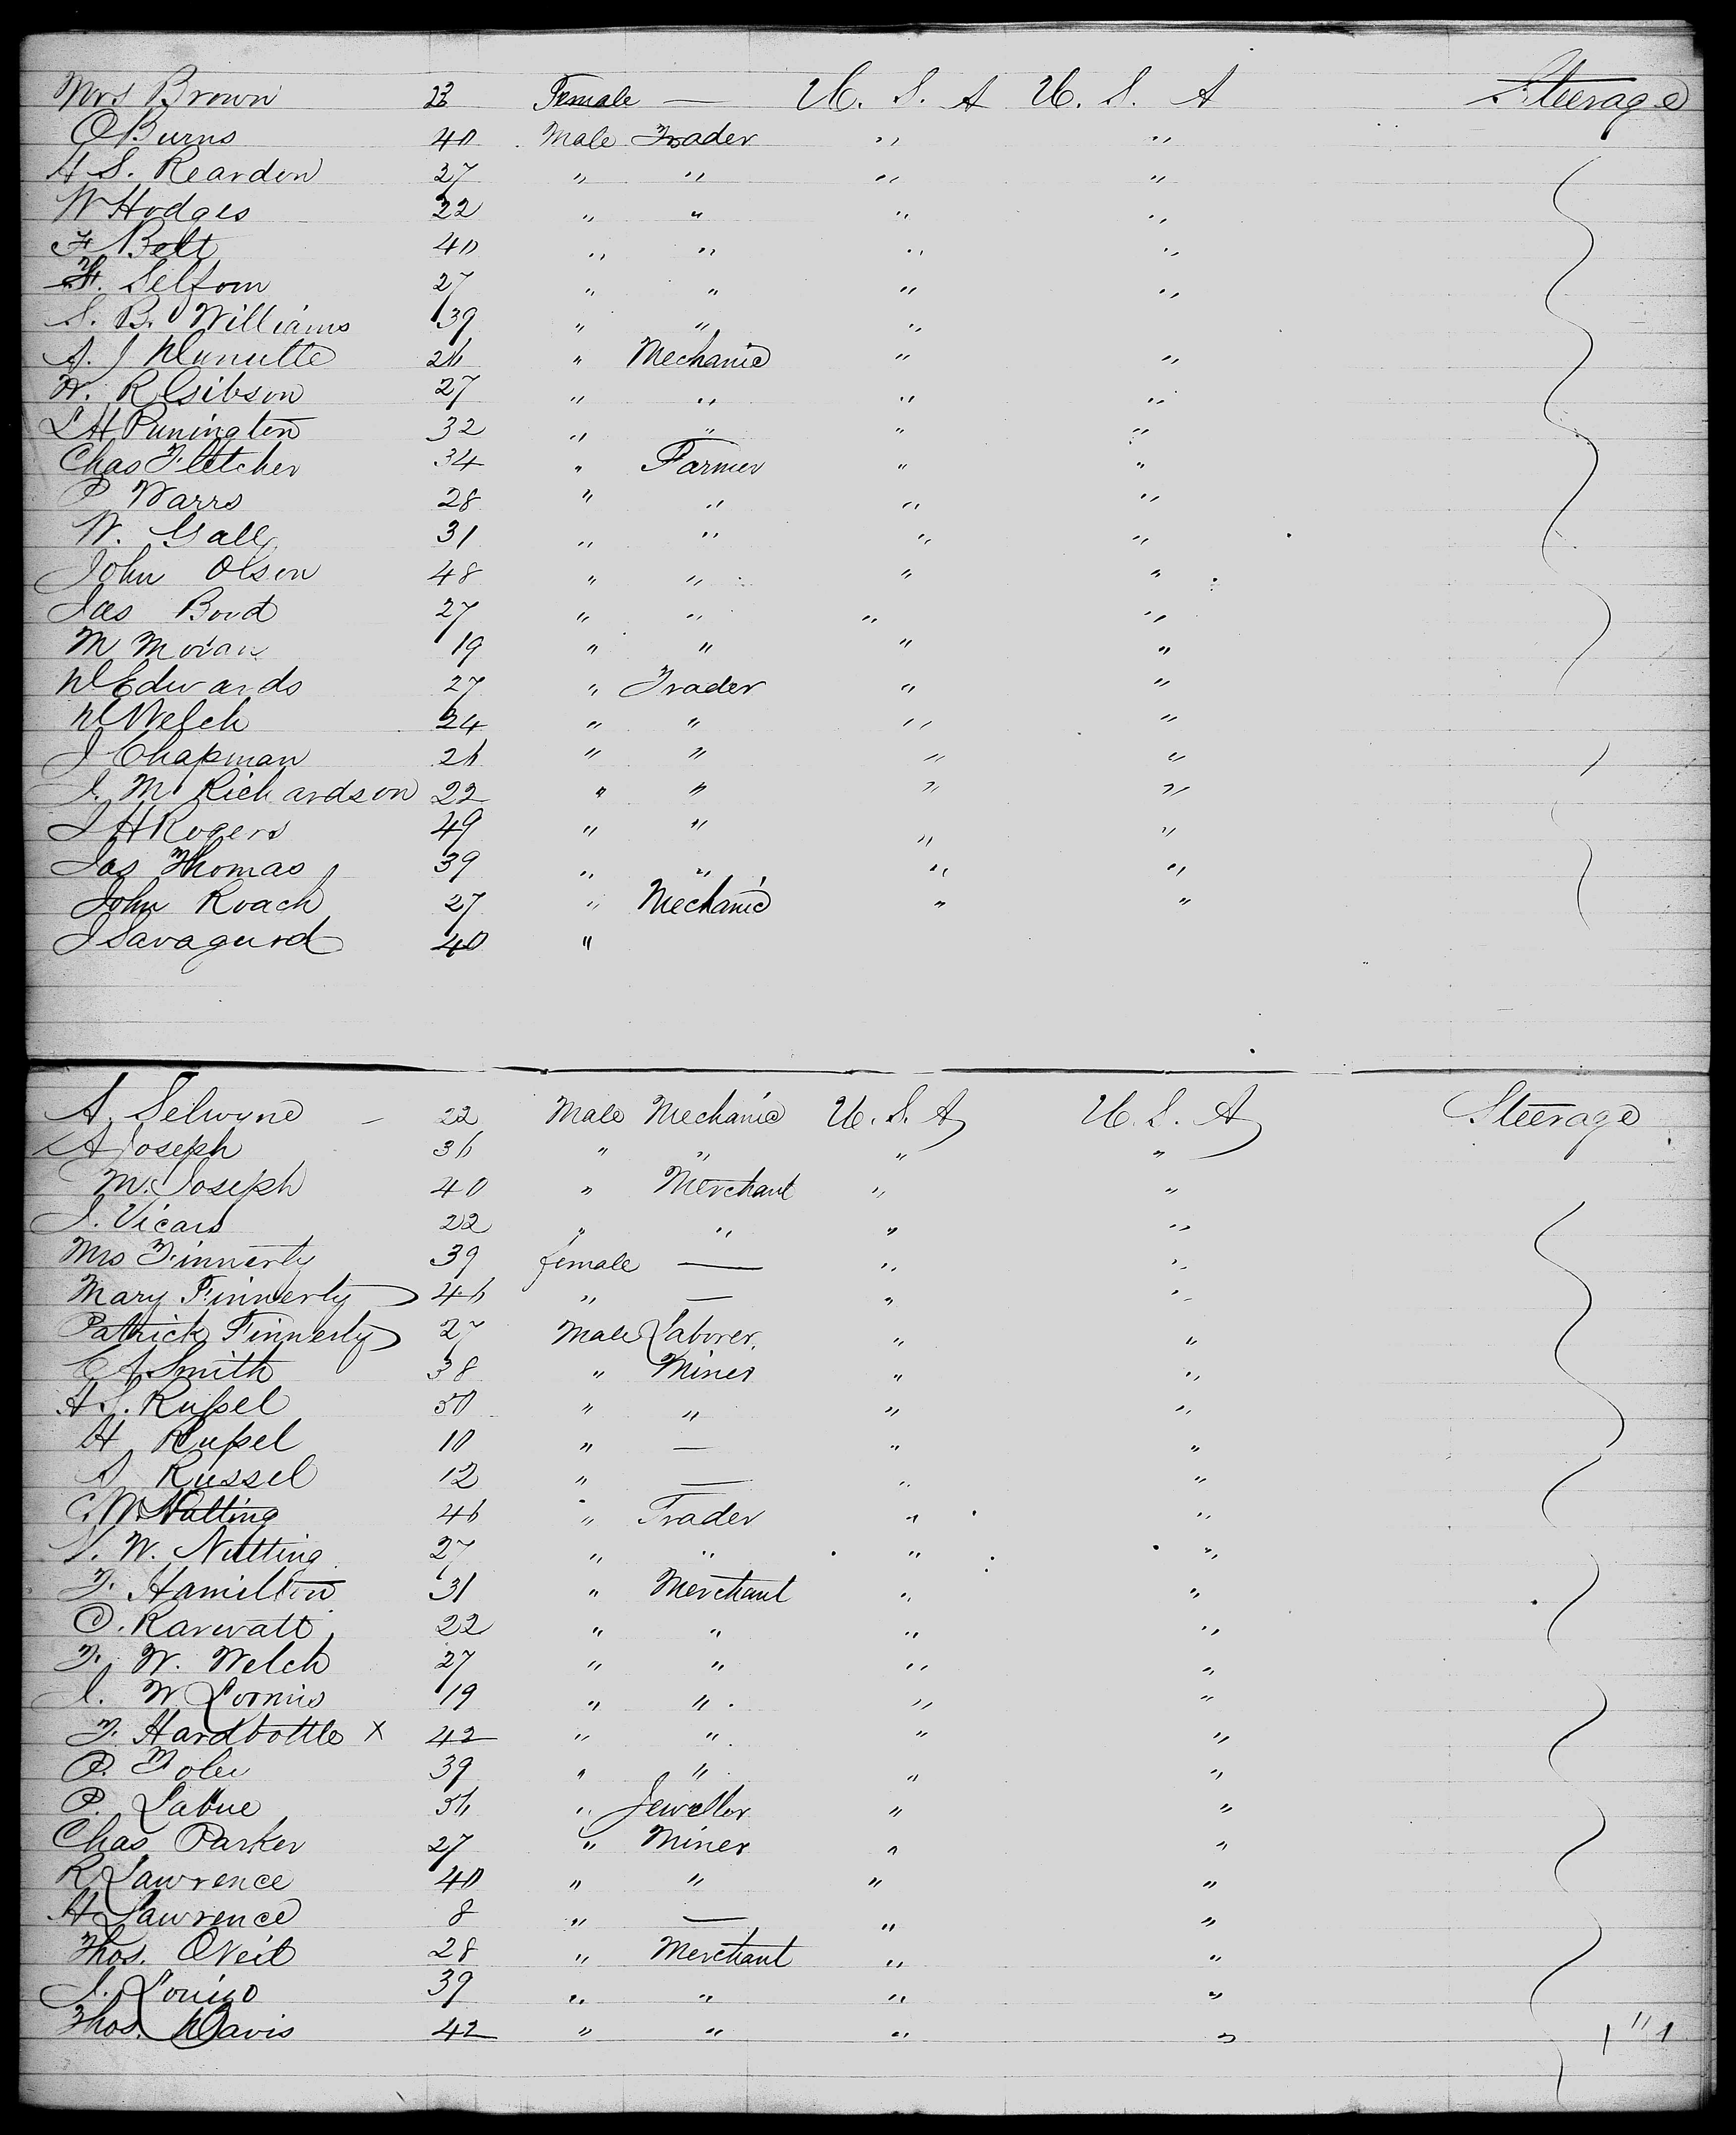 Mrs Brown 23 Female — U. S. A U. S. A Steerage
O Burns 40 Male Trader " "
H S. Reardon 27 " " " "
W Hodges 22 " " " "
F Belt 40 " " " "
27 " " " "
S. B. Williams 39 " " "
A. J 26 " Mechanic " "
W. R Gibson 27 " " " "
L H Punington 32 " " " "
Chas Fletcher 34 " Farmer " "
P Warrs 28 " " " "
W. Gall 31 " " " "
John Olsen 48 " " " "
Jas Boud 27 " " " "
M Moran 19 " " " "
N Edwards 27 " Trader " "
N Welch 24 " " " "
J Chapman 26 " " " "
J. M Richardson 22 " " " "
J H Rogers 49 " " " "
Jas Thomas 39 " " " "
John Roach 27 " Mechanic " "
J Savagurd 40 "
A. Selwyne — 22 Male Mechanic U. S. A U. S. A Steerage
A Joseph 36 " " " "
M. Joseph 40 " Merchant " "
J. Vicars 22 " " " "
Mrs Finnerty 39 female — " "
Mary Finnerty 46 " — " "
Patrick Finnerty 27 Male Laborer. " "
C A Smith 38 " Miner " "
H S. Rufsel 50 " " " "
H Rufsel 10 " — " "
A Russel 12 " — " "
C. W. Nutting 46 " Trader " "
S. W. Nutting 27 " " " "
F. Hamilton 31 " Merchant " "
O. Karwatt 22 " " " "
F. W. Welch 27 " " " "
J. W Loomis 19 " " " "
F. Hardbottle X 42 " " " "
P. Foley 39 " " " "
P. Labue 56 " Jeweller " "
Chas Parker 27 " Miner " "
R Lawrence 40 " " " "
H Lawrence 8 " — " "
Thos. ONeil 28 " Merchant " "
J. 39 " " " "
Thos. Davis 42 " " " "